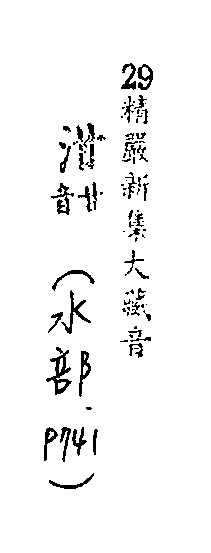 29精嚴新集大藏音
泔
音甘
（水部．P741）